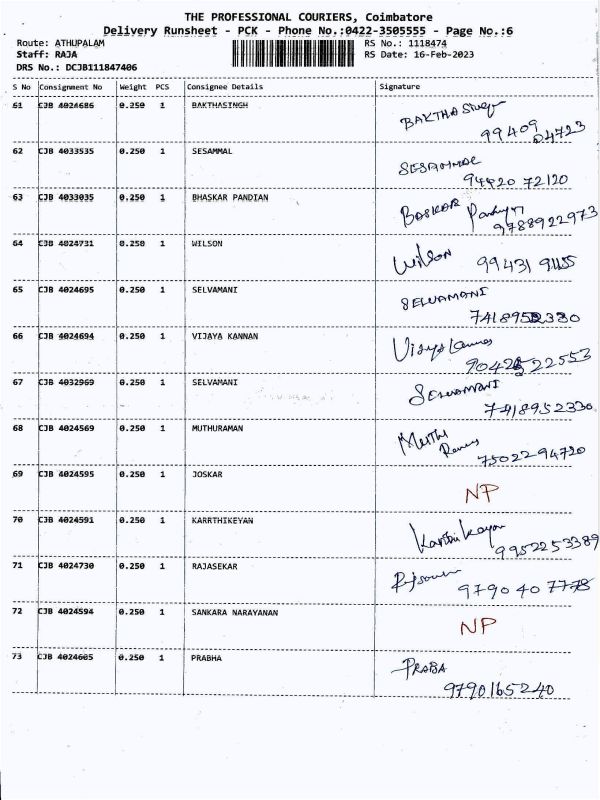 THE PROFESSIONAL COURIERS, Coimbatore
Delivery Runsheet - PCK - Phone No.:0422-3505555 - Page No.:6
Route: ATHUPALAM RS No.: 1118474
Staff: RAJA RS Date: 16-Feb-2023
DRS No.: DCJB111847406
S No Consignment No Weight PCS Consignee Details Signature
61 CJB 4024686 0.250 1 BAKTHASINGH BAKTHA
99409 04723
62 CJB 4033535 0.250 1 SESAMMAL SESAMMAL
94420 72120
63 CJB 4033035 0.250 1 BHASKAR PANDIAN BASKAR
9788922973
64 CJB 4024731 0.250 1 WILSON Wilson 99431
65 CJB 4024695 0.250 1 SELVAMANI SELVAMANI
7418952330
66 CJB 4024694 0.250 1 VIJAYA KANNAN
67 CJB 4032969 0.250 1 SELVAMANI SELVAMANI
7418952330
68 CJB 4024569 0.250 1 MUTHURAMAN
7502294720
69 CJB 4024595 0.250 1 JOSKAR NP
70 CJB 4024591 0.250 1 KARRTHIKEYAN
9952253389
71 CJB 4024730 0.250 1 RAJASEKAR
9790407778
72 CJB 4024594 0.250 1 SANKARA NARAYANAN NP
73 CJB 4024605 0.250 1 PRABHA PRABA
9790165240